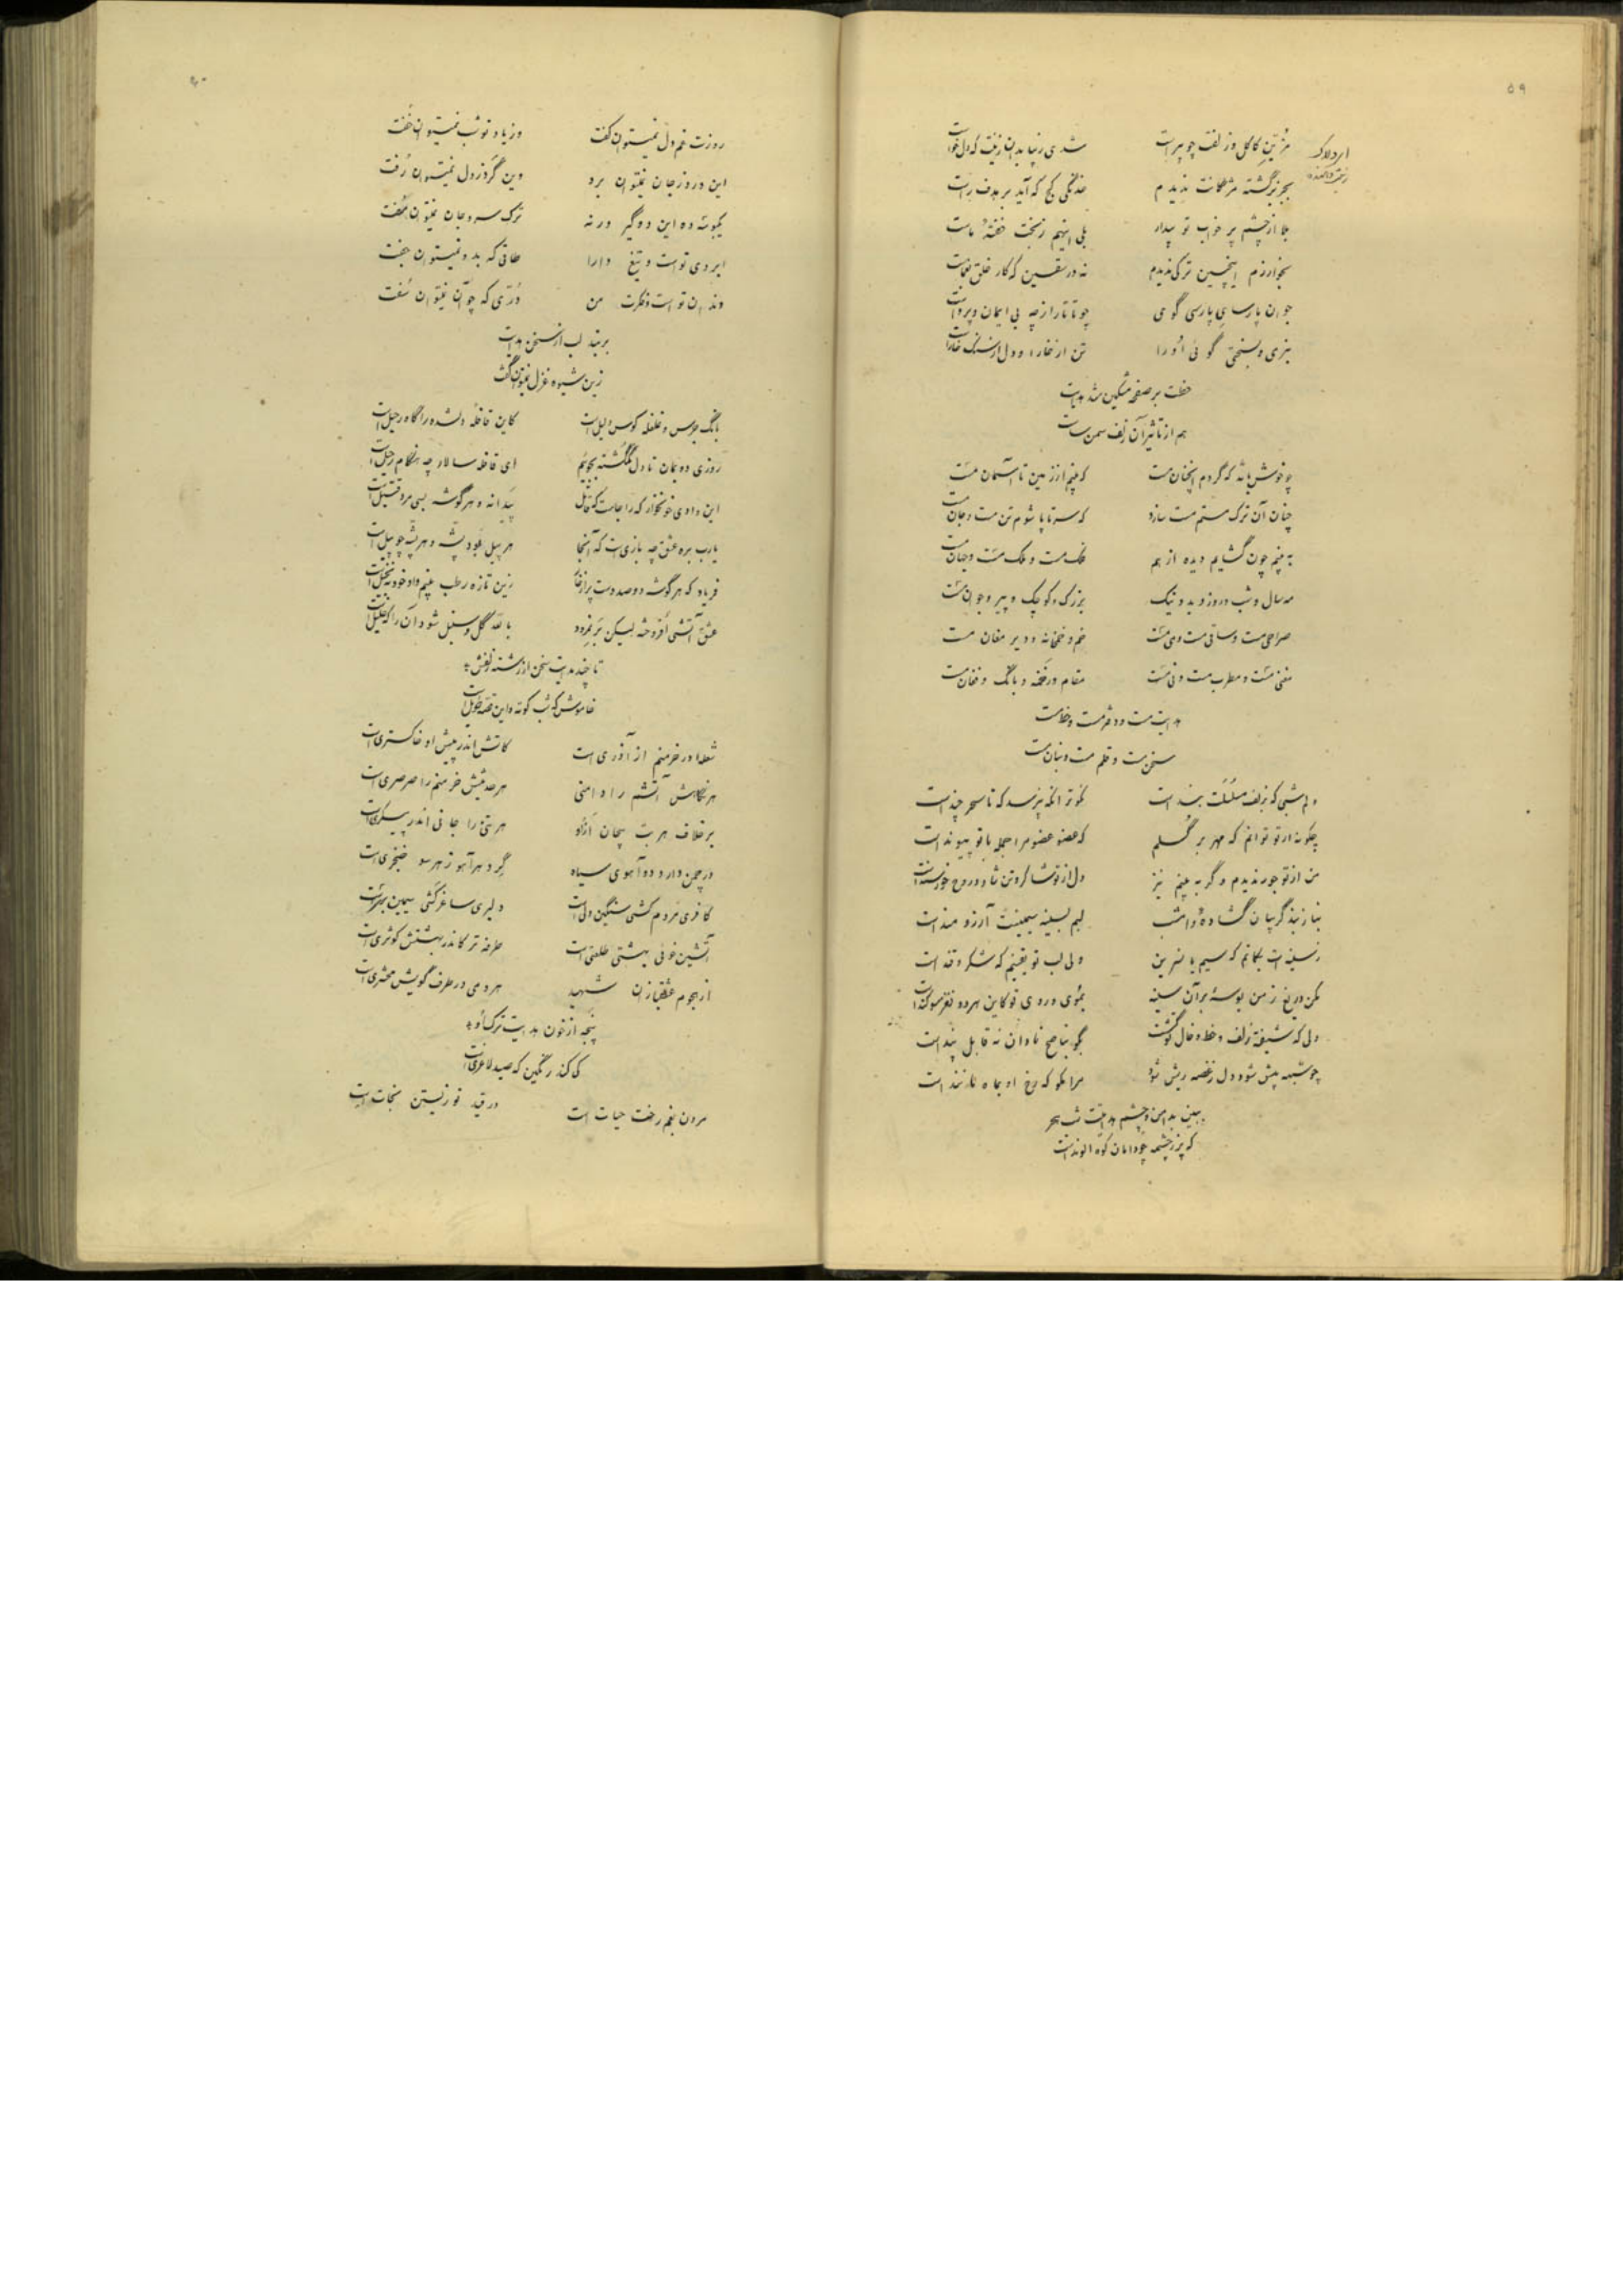 ۵۹
مزین کاکل و زلف چو پیراست
شدی زیبا بدان زینت که دل خواست
بجز برگشته مژگانت ندیدم
خدنگی کج که آید بر هدف راست
بلا از چشم پر خواب تو بیدار
بلی اینهم ز بخت خفتهٔ ماست
بخوارزم اینچنین ترکی ندیدم
نه در سقسین که کار خلق یغماست
جوان پارسای پارسی گوی
چو تاتار از چه بی ایمان و پرواست
بنرمی و بسختی گوئی او را
تن از خارا و دل از سنگ خاراست
خطت بر صفحه مشکین شد هدایت
هم از تاثیر آن زلف سمن ساست
چو خوش باشد که گردم آنچنان مست
که بینم از زمین تا آسمان مست
چنان آن ترک مستم مست سازد
که سر تا پا شوم تن مست و جان مست
به بینم چون گشایم دیده از هم
فلک مست و ملک مست و جهان مست
مه سال و شب و روز و بد و نیک
بزرگ و کوچک و پیر و جوان مست
صراحی مست و ساقی مست و می مست
خم و خمخانه و دیر مغان مست
مغنی مست و مطرب مست و نی مست
مقام و زخمه و بانگ و فغان مست
هدایت مست و دفتر مست و خط مست
سخن مست و قلم مست و بنان مست
دلم شبی که بزلف مسلسلت بند است
نکوتر آنکه نپرسد که تا سحر چند است
چگونه از تو توانم که مهر برگسلم
که عضو عضو مرا جمله با تو پیوند است
من از تو جور ندیدم وگر به بینم نیز
دل از تو شاکر و تن شاد و روح خورسند است
بیا ز بند گریبان گشاده دار امشب
لبم بسینه سیمینت آرزومند است
ز سینه ات بگمانم که سیم یا نسرین
ولی لب تو یقینم که شکر و قند است
مکن دریغ ز من بوسهٔ بر آن سینه
بموی و روی تو کاین هر دو نغز سوگند است
دلی که شیفته زلف و خط و خال تو گشت
بگو بناصح نادان نه قابل پند است
چو شبهه پیش شود دل ز غصه ریش شود
مرا مگو که رخ او بماه مانند است
ببین بدامن و چشم هدایت شب هجر
که پر ز چشمه چو دامان کوه الوند است
۶۰
روزت غم دل نمیتوان گفت
وز یاد تو شب نمیتوان خفت
این درد ز جان نمیتوان برد
وین گرد ز دل نمیتوان رفت
یکبوسه ده این دو گیر ورنه
ترک سر و جان نمیتوان گفت
ابروی تو است و تیغ دارا
طاقی که بد و نمیتوان جفت
دندان تو است و فکرت من
دری که چو آن نمیتوان سفت
بربند لب از سخن هدایت
زین شیوه غزل نمیتوان گفت
بانگ جرس و غلغله کوس دلیل است
کاین قافلهٔ دلشده را گاه رحیل است
روزی دو بمان تا دل گمگشته بجویم
ای قافله سالار چه هنگام رحیل است
این وادی خونخوار کجا جاست که قاتل
پیدا نه و هر گوشه بسی مرد قتیل است
یارب بره عشق چه بازیست که آنجا
هر پیل بود پشه و هر پشه چو پیل است
فریاد که هر گوشه دو صد دست پر از خار
زین تازه رطب بینم و او خود به نخیل است
عشق آتشی افروخته لیکن نه ز نمرود
بالله گل و سنبل شود آنرا که خلیل است
تا چند هدایت سخن از رشته زلفش
خاموش که شب کوته و این قصه طویل است
شعله در خرمنم از آذری است
کاتش اندر پیش او خاکستری است
هر نگاهش آتشم را دامنی
هر حدیثش خرمنم را صرصری است
بر خلاف هر بت بیجان آزاد
هر بتی را جانی اندر پیکری است
در چمن دارد دو آهوی سیاه
گرد هر آهو ز هر سو خنجری است
کافری مردم کشی سنگین دلی است
دلبری ساغرکشی سیمین بری است
آتشین خوئی بهشتی طلعتی است
طرفه تر کاندر بهشتش کوثری است
از هجوم عشقبازان شهید
هر دمی در طرف کویش محشری است
پنجه از خون هدایت ترک او
کی کند رنگین که صید لاغری است
مردن بغم رخت حیات است
در قید تو زیستن نجات است